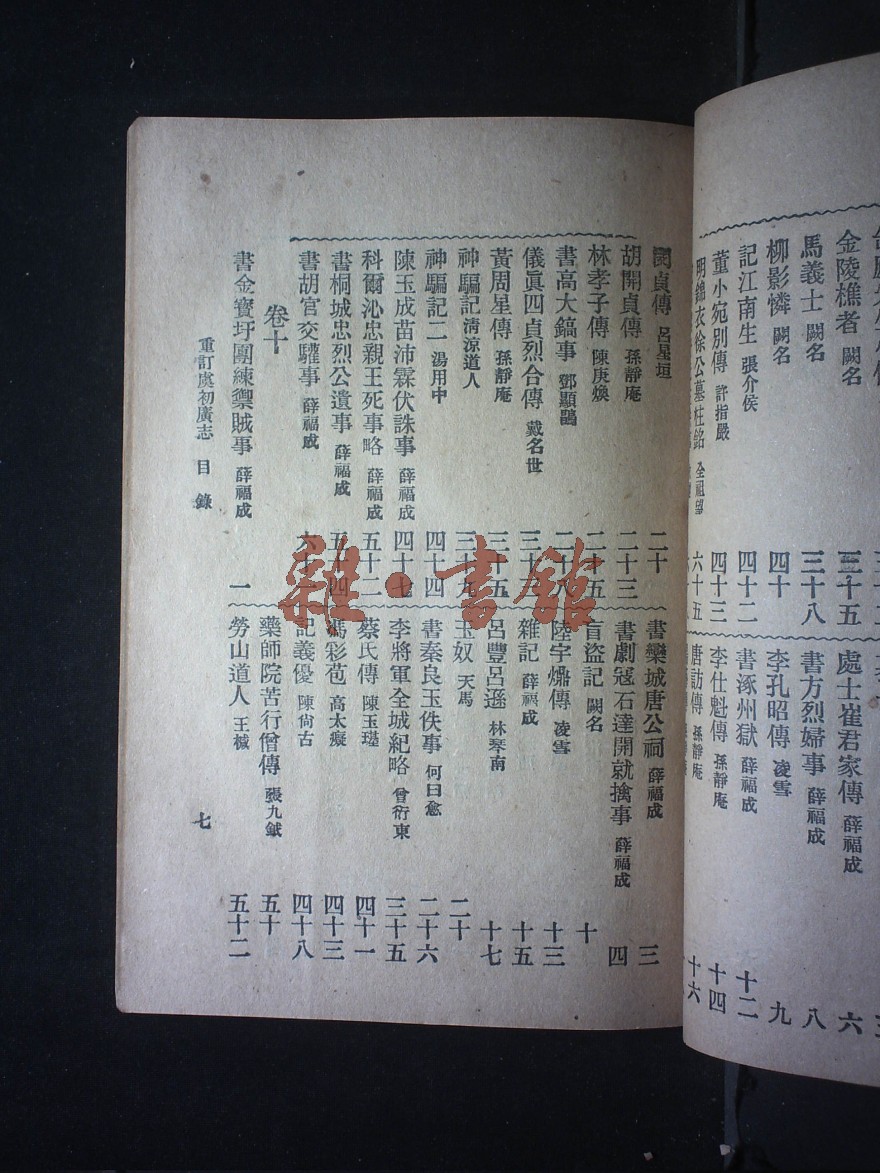 金陵樵者 闕名 三十五
馬義士 闕名 三十八
柳影憐 闕名 四十
記江南生 張介侯 四十二
董小宛別傳 許指嚴 四十三
明錦衣徐公墓柱銘 全祖望 六十五
處士崔君家傳 薛福成 六
書方烈婦事 薛福成 八
李孔昭傳 凌雪 九
書涿州獄 薛福成 十二
李仕魁傳 孫靜庵 十四
唐訪傳 孫靜庵 十六
閔貞傳 呂星垣 二十
胡開貞傳 孫靜庵 二十三
林孝子傳 陳庚煥 二十五
書高大鎬事 鄧顯鶴 二十八
儀眞四貞烈合傳 戴名世
黃周星傳 孫靜庵 三十五
神騙記 清涼道人 三十九
神騙記二 湯用中 四十四
陳玉成苗沛霖伏誅事 薛福成 四十七
科爾沁忠親王死事略 薛福成 五十二
書桐城忠烈公遺事 薛福成 五十四
書胡官交驩事 薛福成 六十一
卷十
書金寶圩團練禦賊事 薛福成 一
書欒城唐公祠 薛福成 三
書劇寇石達開就擒事 薛福成 四
盲盜記 闕名 十
陸宇𤐫傳 凌雪 十三
雜記 薛福成 十五
呂豐呂遜 林琴南 十七
玉奴 天馬 二十
書秦良玉佚事 何曰愈 二十六
李將軍全城紀略 曾衍東 三十五
蔡氏傳 陳玉璂 四十一
馮彩苞 高太癡 四十三
記義優 陳尙古 四十八
藥師院苦行僧傳 張九鉞 五十
勞山道人 王棫 五十二
重訂虞初廣志 目錄 七
雜·書館